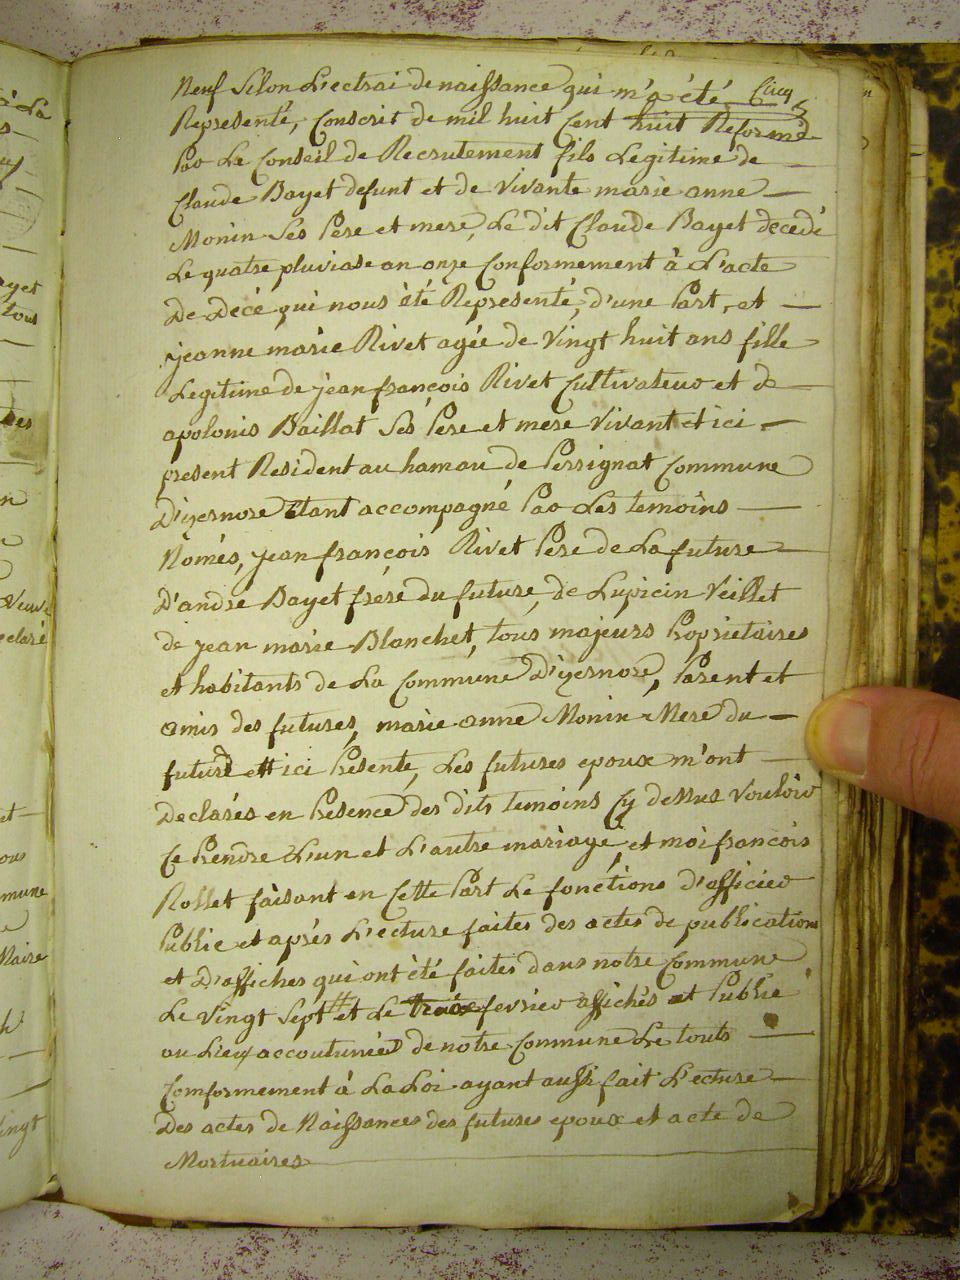 Neuf Selon L'ectrai de naissance qui m'a été Cinq
Representé, Conscrit de mil huit Cent huit Reformé
Par Le Conseil de Recrutement fils Legitime de
Claude Bayet defunt et de Vivante marie anne
Monin Ses Pere et mere, Le dit Claude Bayet decedé
Le quatre pluviose an onze Conformement à L'acte
De Décé qui nous été Representé, d'une Part, et
jeanne marie Rivet agée de Vingt huit ans fille
Legitime de jean françois Rivet Cultivateur et de
apolonis Baillat Ses Pere et mere Vivant et ici
present Resident au hamau de Perignat Commune
D'izernore Etant accompagné Par Les temoins
Només, jean françois Rivet Pere de La future
D'andré Bayet frére du future, de Lupicin Veillet
de jean marie Blanchet, tous majeurs Proprietaires
et habitants de La Commune D'izernore, Parent et
amis des futures, marie anne Monin Mere du
futurs et ici Présente, Les futures epoux m'ont
Declarés en Présence des dits temoins Cy dessus Vouloir
Ce Prendre L'un et L'autre mariage, et moi francois
Rollet faisant en Cette Part Le fonctions d'officier
Public et aprés L'ecture faites des actes de publications
et D'affiches qui ont été faites dans notre Commune
Le Vingt Sept et Le fevrier affichés et Publié
au Lieux accoutumés de notre Commune Le touts
Comformement à La Loi ayant aussi fait L'ecture
Des actes de Naissances des futures epoux et acte de
Mortuaires